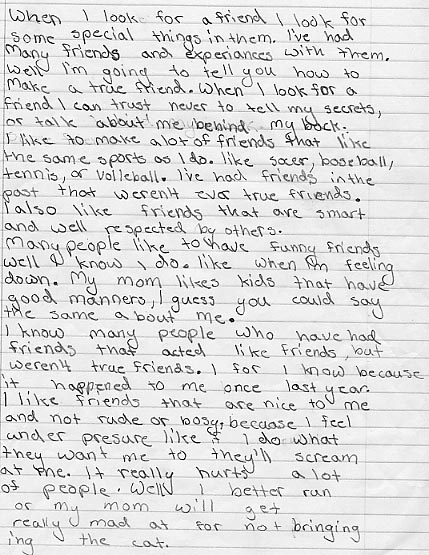 When I look for a friend I look for
some special things in them. I've had
Many friends and experiances with them.
Well I'm going to tell you how to
Make a true friend. When I look for a
friend I can trust never to tell my secrets,
or talk about me behind my back.
I like to make alot of friends that like
the same sports as I do. like soccer, baseball,
tennis, or Volleball. I've had friends in the
past that weren't ever true friends.
I also like friends that are smart
and well respected by others.
Many people like to have funny friends
well I know I do. like when I'm feeling
down. My mom likes kids that have
good manners, I guess you could say
the same about me.
I know many people who have had
friends that acted like friends, but
weren't true friends. I for I know because
it happened to me once last year.
I like friends that are nice to me
and not rude or bosy, becuase I feel
under presure like if I do what
they want me to they'll scream
at me. It really hurts a lot
of people. Well I better run
or my mom will get
really mad at for not bringing
ing the cat.